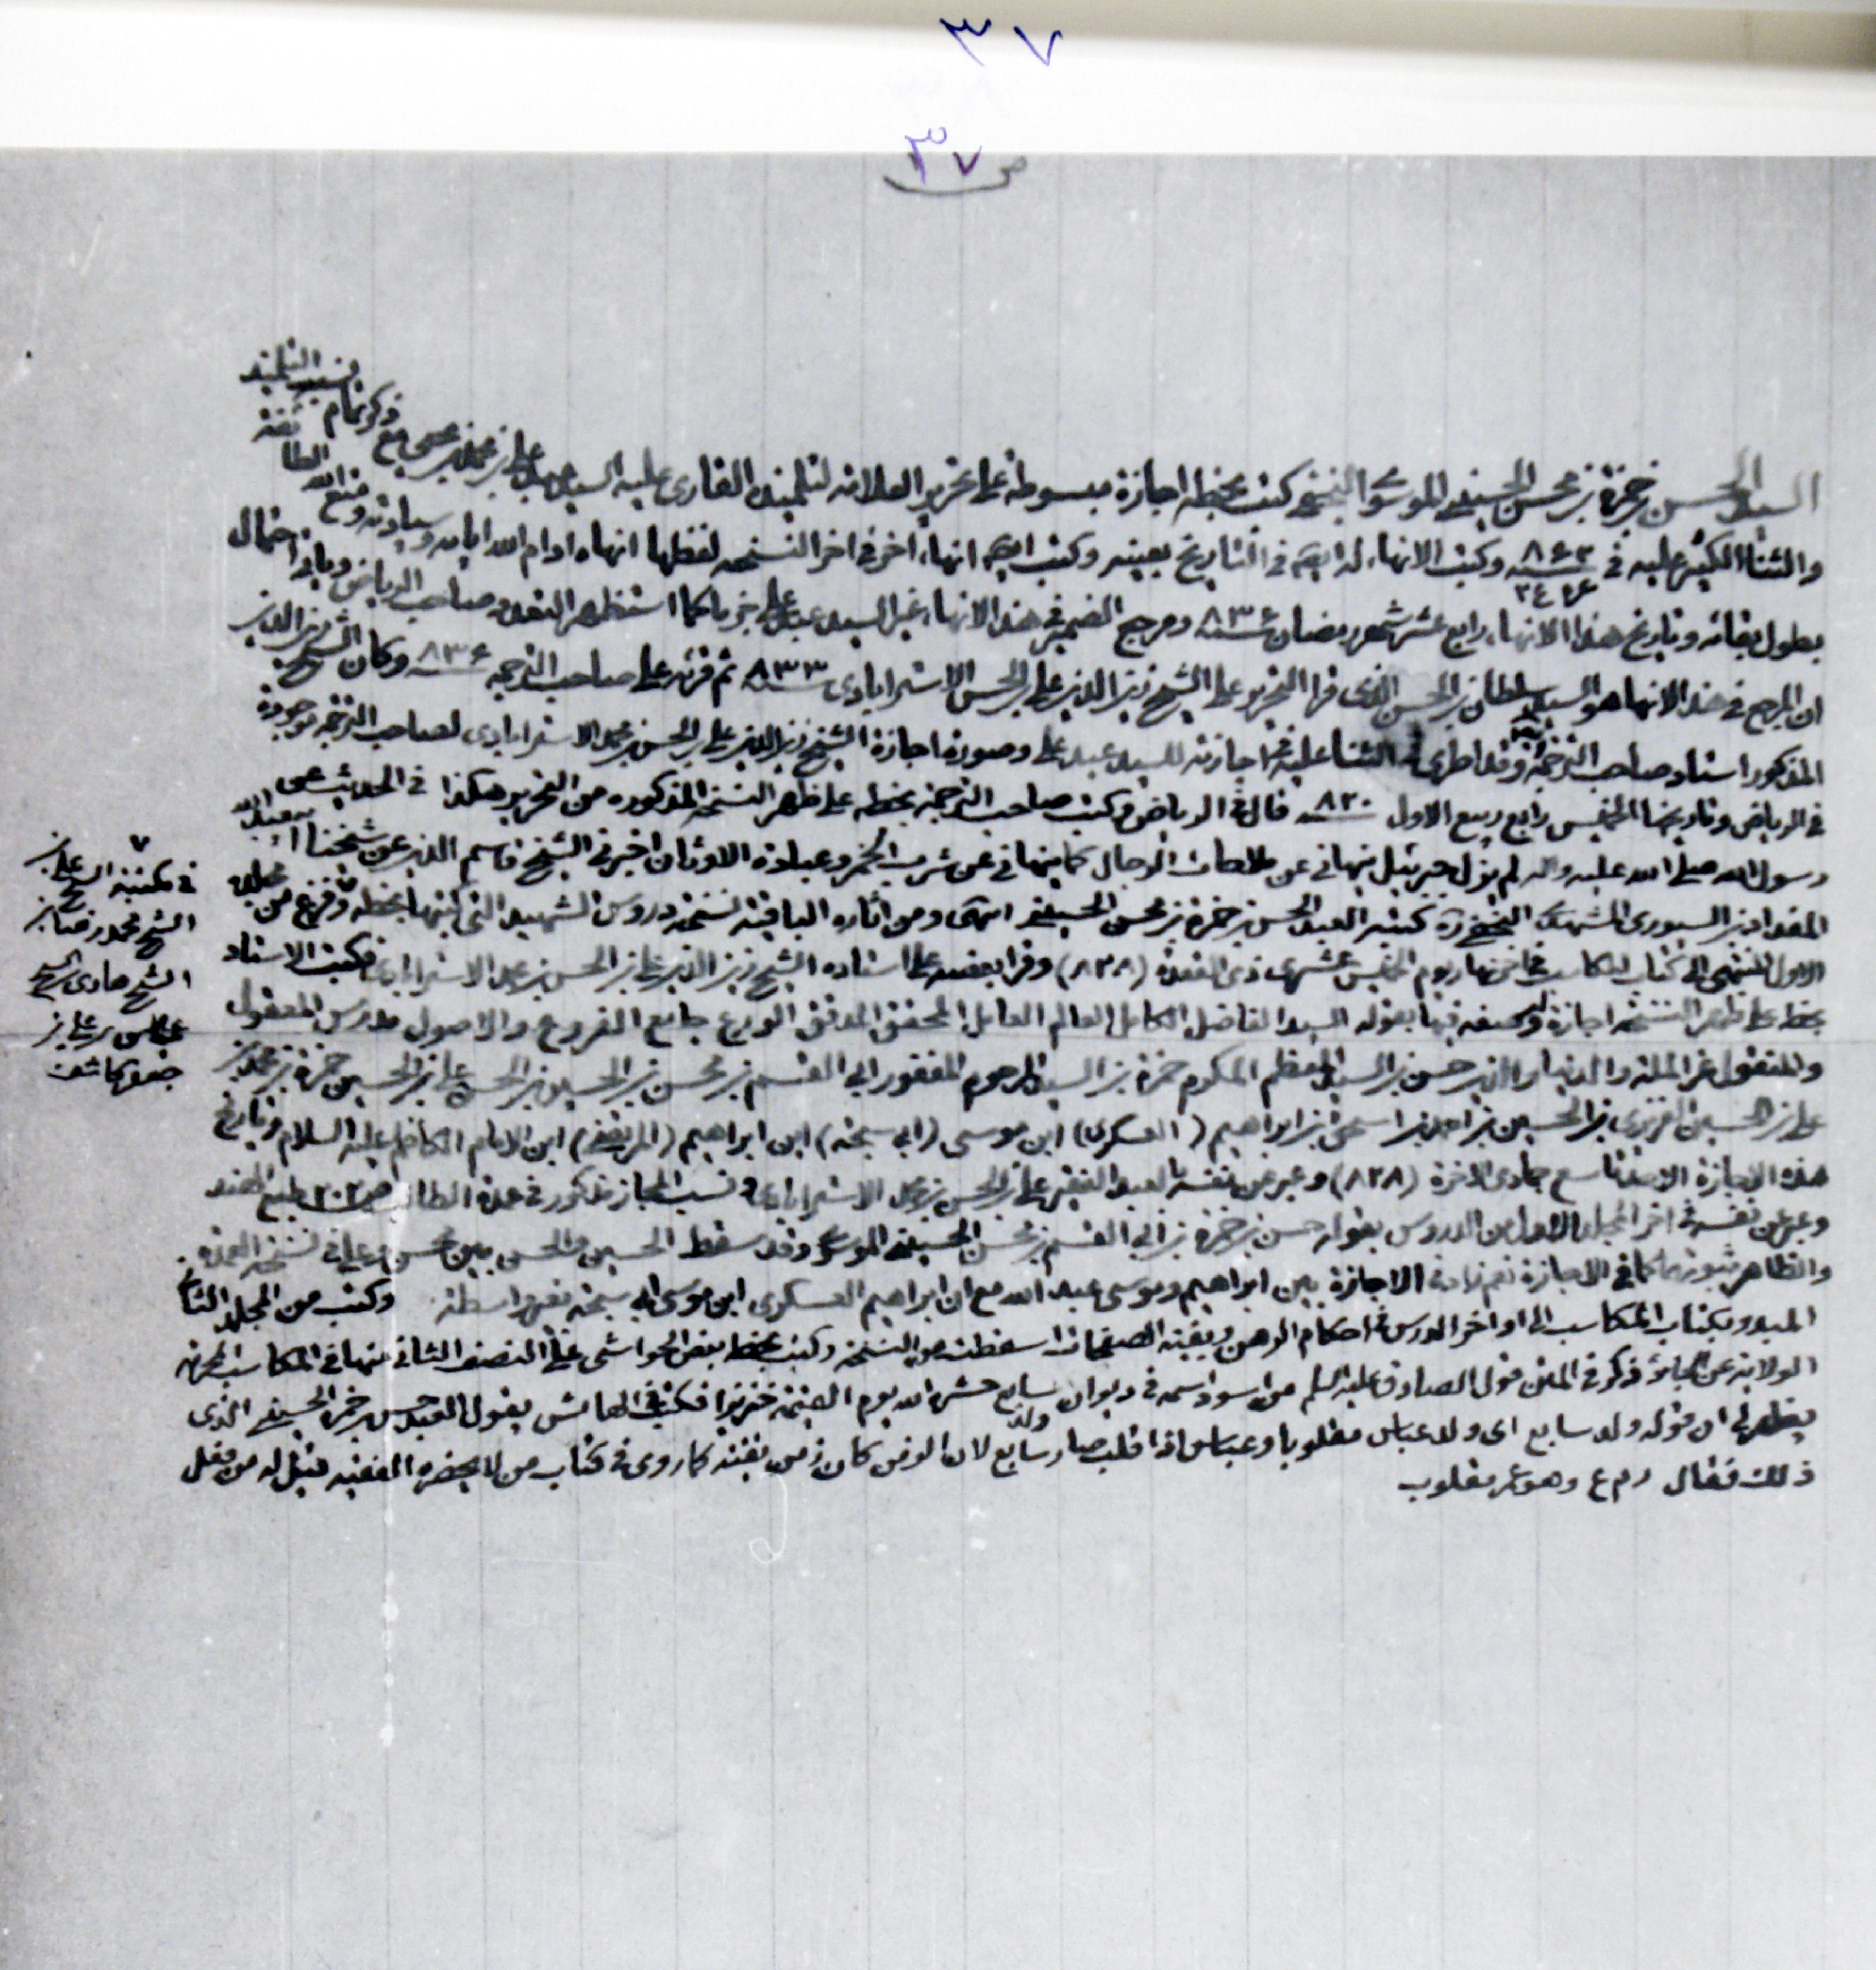 ٣٧
ص ٣٧
السيد الحسن بن حمزة بن محسن الحسيني الموسوي النجفي كتب بخطه اجازة مبسوطة على تحرير العلامة لتلميذه القارى عليه السيد عبد على بن محمد بن مع ذكر تمام نسب التلميذ
والثناء الكثير عليه في ٨٦٢ وكتب الانهاء له ايضا في التاريخ بعينه وكتب ايضا انهاء اخر في اخر النسخة لفظها انهاه ادام الله ايامه وسيادته ومتع الله الطائفة
بطول بقائه وتاريخ هذا الانهاء رابع عشر شهر رمضان ٨٣٦ ومرجع الضمير في هذا الانهاء غير السيد عبد على جزما كما استظهر النقد صاحب الرياض وباني احتمال
ان المرجع في هذا الانهاء هو السيد سلطان بن الحسن الذى قرا التحرير على الشيخ زين الدين على بن الحسن الاسترابادى ٨٣٣ ثم قرئه على صاحب الترجمة ٨٣٦ وكان الشيخ زين الدين
المذكور استاد صاحب الترجمة وقد اطرى في الثناء عليه في اجازته للسيد عبد على وصورة اجازة الشيخ زين الدين على بن الحسن بن محمد الاسترابادى لصاحب الترجمة موجودة
في الرياض وتاريخها الخميس رابع ربيع الاول ٨٢٠ قال في الرياض وكتب صاحب الترجمة بخطه على ظهر النسخة المذكورة من التحرير هكذا في الحديث عن
رسول الله صلى الله عليه واله لم يزل جبرئيل ينهاني عن ملاحات الرجال كما ينهاني عن شرب الخمر وعبادة الاوثان اخبرني الشيخ قاسم الدين عن شيخنا ابى عبد الله
المقداد بن السيورى المشهدى النجفي ره كتبه العبد الحسن بن حمزة بن محسن الحسيني انتهى ومن اثاره الباقية نسخة دروس الشهيد التي كتبها بخطه وفرغ من مجلده
الاول المنتهى الى كتاب المكاسب في نهار يوم الخميس عشرى ذى القعدة (٨٢٨) وقرا بعضه على استاده الشيخ زين الدين على بن الحسن بن محمد الاسترابادى فكتب الاستاد
بخطه على ظهر النسخة اجازة له وصفه فيها بقوله السيد الفاضل الكامل العالم العامل المحقق المدقق الورع جامع الفروع والاصول مدرس المعقول
والمنقول عز الملة والدنيا والدين حسن بن السيد المعظم المكرم حمزة بن السيد المرحوم المغفور ابي القسم بن محسن بن الحسين بن الحسن على بن الحسين حمزة بن محمد بن
على بن الحسين بن الحسين بن احمد بن اسمعيل بن ابراهيم (العسكرى) ابن موسى (ابي سبحة) ابن ابراهيم (المرتضى) ابن الامام الكاظم عليه السلام وتاريخ
هذه الاجازة الاحد تاسع جمادى الاخرة (٨٢٨) وعبر عن نفسه بالعبد الفقير على بن الحسن بن محمد الاسترابادى ونسب المجاز مذكور في عمدة الطالب ص ٢٠٢ طبع الهند
وعبر عن نفسه في اخر المجلد الاول من الدروس بقوله حسن بن حمزة بن ابي القسم بن محسن الحسيني الموسوي وقد سقط الحسين والحسن بين محسن وعلى في نسخة العمدة
والظاهر ثبوتهما كما في الاجازة نعم زاد في الاجازة بين ابراهيم وموسى عبد الله مع ان ابراهيم العسكرى ابن موسى ابي سبحة بغير واسطة وكتب من المجلد الثاني
المبدو بكتاب المكاسب الى اواخر الدرس في احكام الرهن وبقية الصفحات اسقطت من النسخة وكتب بخطه بعض الحواشى على النصف الثاني منها في المكاسب المحرمة
الولاية عن الجائر ذكر في المتن قول الصادق عليه السلم من اسود اسمه في ديوان ولد سابع حشره الله يوم القيمة خنزيرا فكتب في الهامش يقول العبد حسن بن حمزة الحسيني الذى
يظهر لى ان قوله ولد سابع اى ولد عباس مقلوبا وعباس اذا قلب صار سابع لان الزمن كان زمن تقية كما روى في كتاب من لا يحضره الفقيه قيل له من فعل
ذلك فقال رمع وهو عمر مقلوب
في مكتبة الشيخ على بن
الشيخ محمد رضا بن
الشيخ هادى بن الشيخ
عباس بن على بن
جعفر كاشف